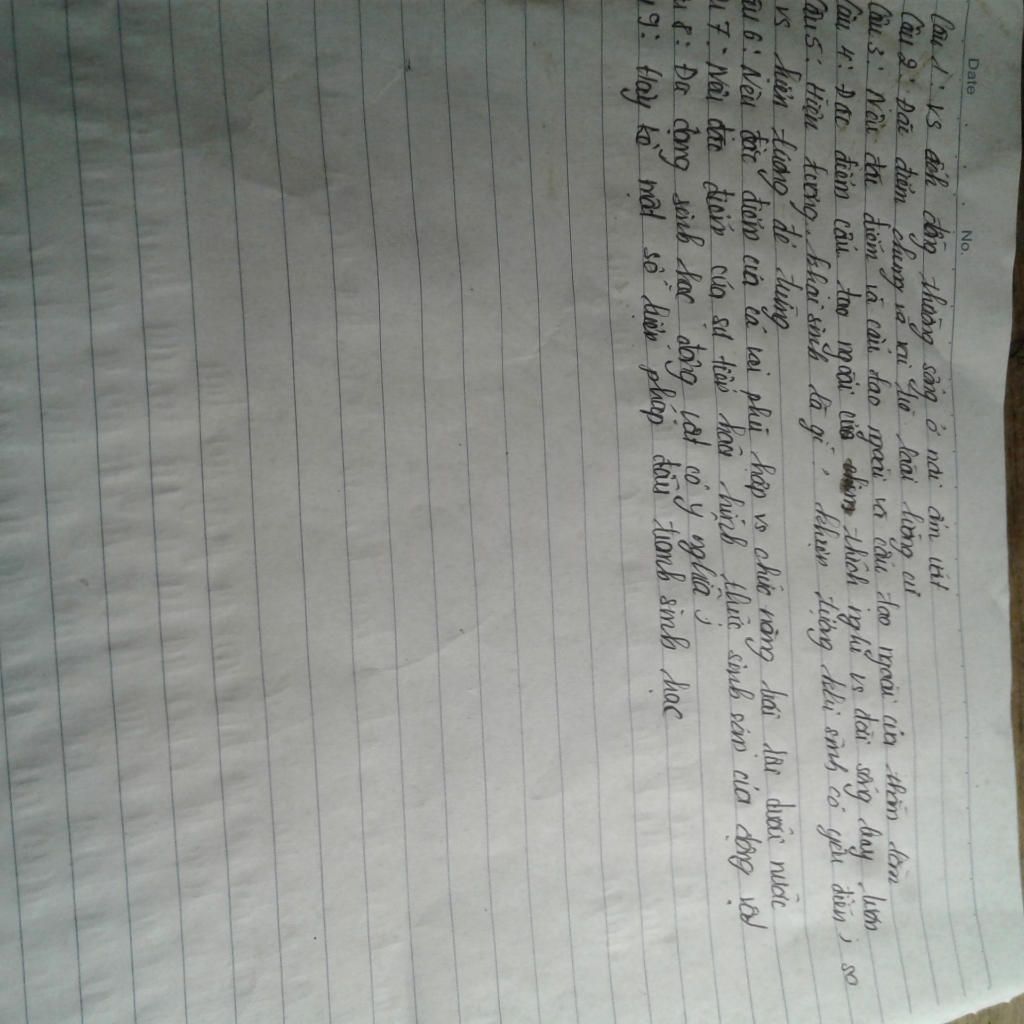 Date No.
Câu 1: Vs ếch đồng thường sống ở nơi ẩm ướt
Câu 2: Đặc điểm chung và vai trò loài lưỡng cư
Câu 3: Nêu đặc điểm và cấu tạo ngoài và cấu tạo ngoài của thằn lằn
Câu 4: Đặc điểm cấu tạo ngoài của chim thích nghi vs đời sống bay lượn
Câu 5: Hiện tượng thai sinh là gì, hiện tượng thai sinh có ưu điểm, so
vs hiện tượng đẻ trứng
Câu 6: Nêu đặc điểm của cá voi phù hợp vs chức năng bơi lặn dưới nước
7: Nêu đặc điểm của sự tiến hóa hình thức sinh sản của động vật
8: Đa dạng sinh học động vật có ý nghĩa,
9: Hãy kể một số biện pháp đấu tranh sinh học